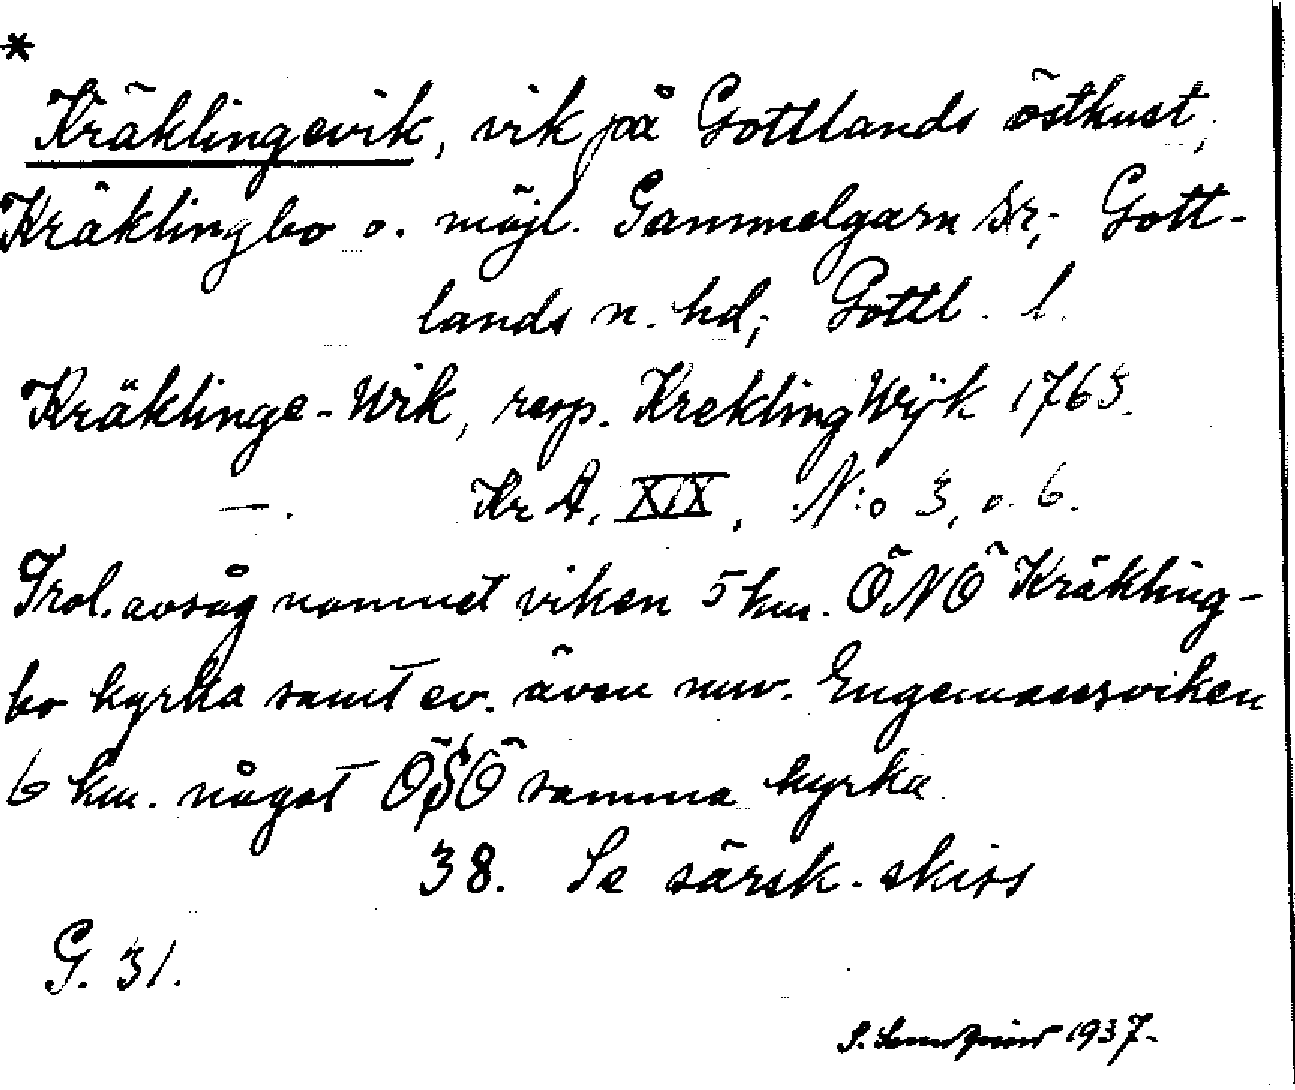 *
Kräklingevik, vik på Gottlands östkust,
Kräklingbo o. möjl. Gammelgarn sr; Gott-
lands n. hd; Gottl. l.
Kräklinge-Wik, resp. KreklingWijk 1763.
—. Kr A. XIX, N:o 3, o. 6.
Trol. avsåg namnet viken 5 km. ÖNÖ Kräkling-
bo kyrka samt ev. även nuv. Engemansviken
6 km. något ÖSÖ samma kyrka
38. Se särsk. skiss
G. 31.
S. 1937.